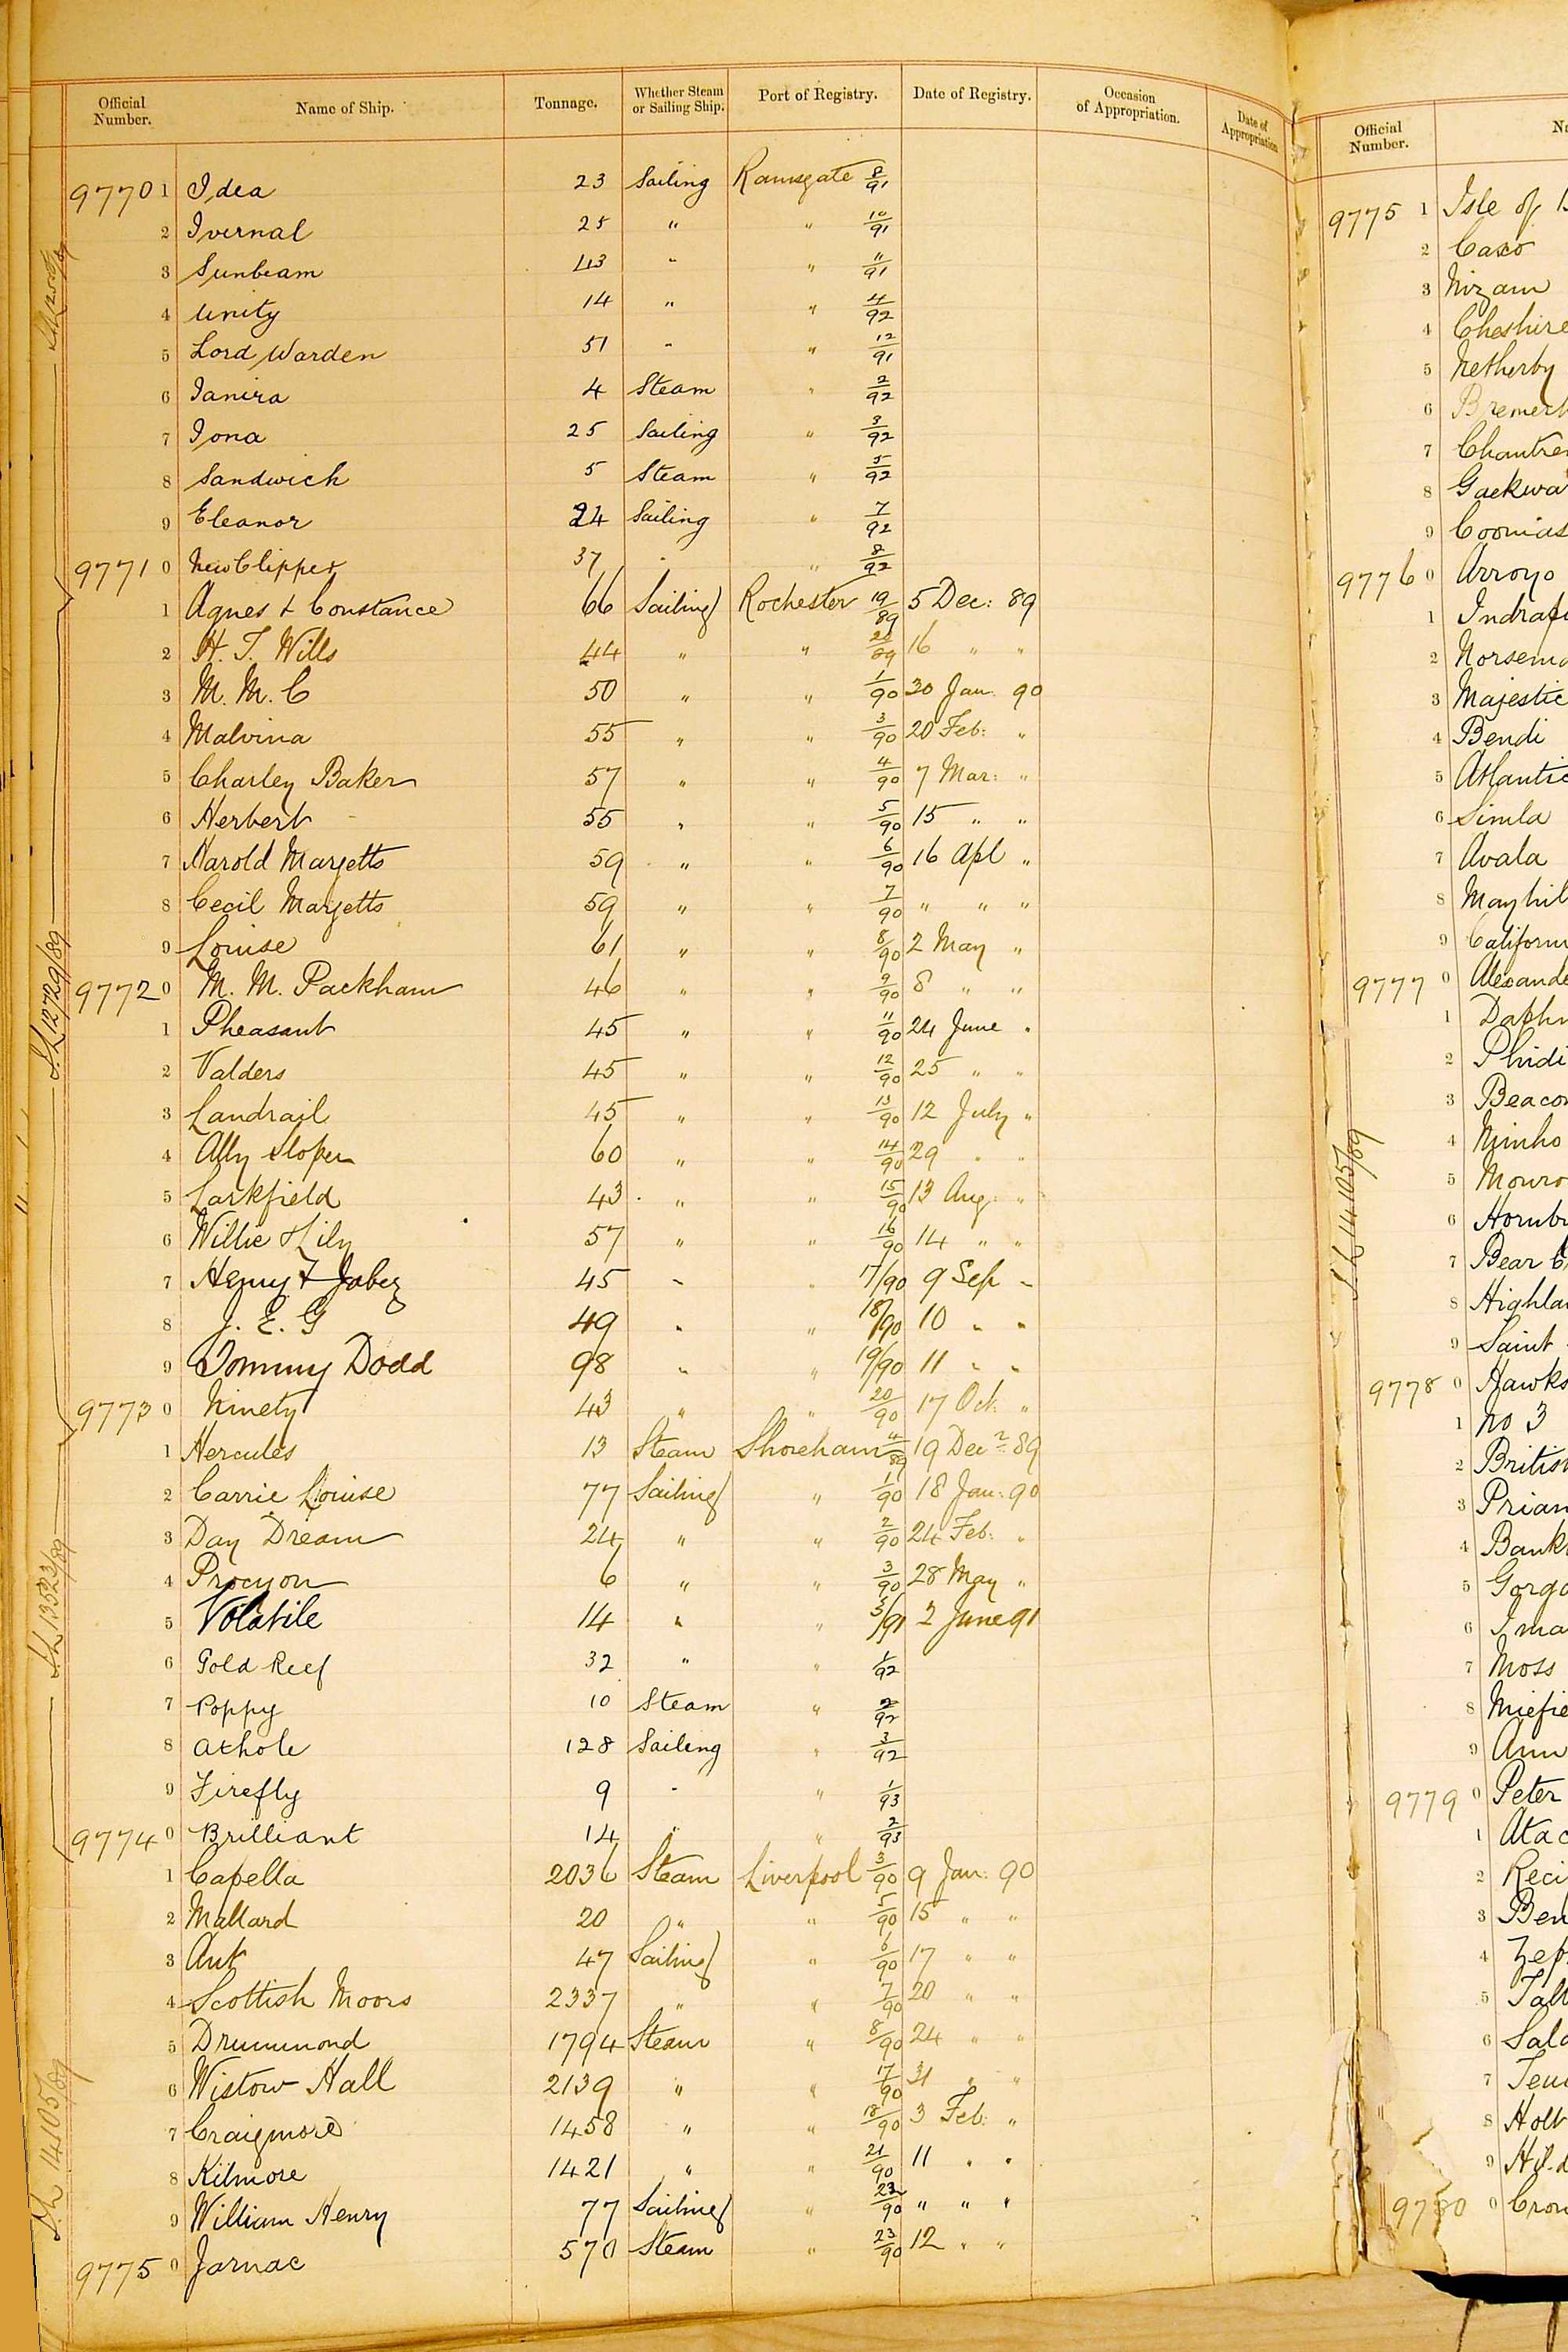 Official Number. Name of Ship. Tonnage. Whether Steam or Sailing Ship. Port of Registry. Date of Registry. Occasion of Appropriation. Date of Appropriation
97701 Idea 23 Sailing Ramsgate 8/91
2 Ivernal 25 " " 10/91
3 Sunbeam 43 " " 11/91
4 Unity 14 " " 4/92
5 Lord Warden 51 " " 12/91
6 Ianira 4 Steam " 2/92
7 Iona 25 Sailing " 3/92
8 Sandwich 5 Steam " 5/92
9 Eleanor 24 Sailing " 7/92
97710 New Clipper 37 " " 8/92
1 Agnes & Constance 66 Sailing Rochester 19/89 5 Dec: 89
2 H. T. Wills 44 " " 20/89 16 " "
3 M. M. C 50 " " 1/90 30 Jan: 90
4 Malvina 55 " " 3/90 20 Feb: "
5 Charley Baker 57 " " 4/90 7 Mar: "
6 Herbert 55 " " 5/90 15 " "
7 Harold Margetts 59 " " 6/90 16 Apl "
8 Cecil Margetts 59 " " 7/90 " " "
9 Louise 61 " " 8/90 2 May "
97720 M. M. Packham 46 " " 9/90 8 " "
1 Pheasant 45 " " 11/90 24 June "
2 Valders 45 " " 12/90 25 " "
3 Landrail 45 " " 13/90 12 July "
4 Ally Sloper 60 " " 14/90 29 " "
5 Larkfield 43 " " 15/90 13 Aug: "
6 Willie & Lily 57 " " 16/90 14 " "
7 Henry & Jabez 45 " " 17/90 9 Sep "
8 J. E. G 49 " " 18/90 10 " "
9 Tommy Dodd 98 " " 19/90 11 " "
97730 Ninety 43 " " 20/90 17 Oct: "
1 Hercules 13 Steam Shoreham 4/89 19 Decr 89
2 Carrie Louise 77 Sailing " 1/90 18 Jan: 90
3 Day Dream 24 " " 2/90 24 Feb: "
4 Procyon 6 " " 3/90 28 May "
5 Volatile 14 " " 3/91 2 June 91
6 Gold Reef 32 " " 1/92
7 Poppy 10 Steam " 2/92
8 Athole 128 Sailing " 3/92
9 Firefly 9 " " 1/93
97740 Brilliant 14 " " 2/93
1 Capella 2036 Steam Liverpool 3/90 9 Jan: 90
2 Mallard 20 " " 5/90 15 " "
3 Ant 47 Sailing " 6/90 17 " "
4 Scottish Moors 2337 " " 7/90 20 " "
5 Drummond 1794 Steam " 8/90 24 " "
6 Wistow Hall 2139 " " 17/90 31 " "
7 Craigmore 1458 " " 18/90 3 Feb: "
8 Kilmore 1421 " " 21/90 11 " "
9 William Henry 77 Sailing " 22/90 " " "
97750 Jarnac 570 Steam " 23/90 12 " "
S.L 12729/89
S.L 13523/89
S.L 14105/89
Official Number.
97751 Isle of
2 Caxo
3 Nizam
4 Cheshire
5 Netherby
6 Bremerh
7 Chautre
8 Gaekwa
9 Coomas
97760 Arroyo
1 Indrap
2 Norsema
3 Majestic
4 Bendi
5 Atlantic
6 Simla
7 Avala
8 Mayhil
9 Californ
97770 Alexande
1 Daphn
2 Phidi
3 Beacon
4 Minho
5 Monro
6 Hornby
7 Bear C
8 Highla
9 Saint
97780 Hawks
1 No 3
2 British
3 Priam
4 Bank
5 Gorgo
6 Ima
7 Moss
8 Miefie
9 Ann
97790 Peter
1 Atac
2 Reci
3 Ben
4 Zep
5 Tall
6 Sala
7 Teu
8 Holt
9 Hil.d
97800 Crow
S.L 14105/89